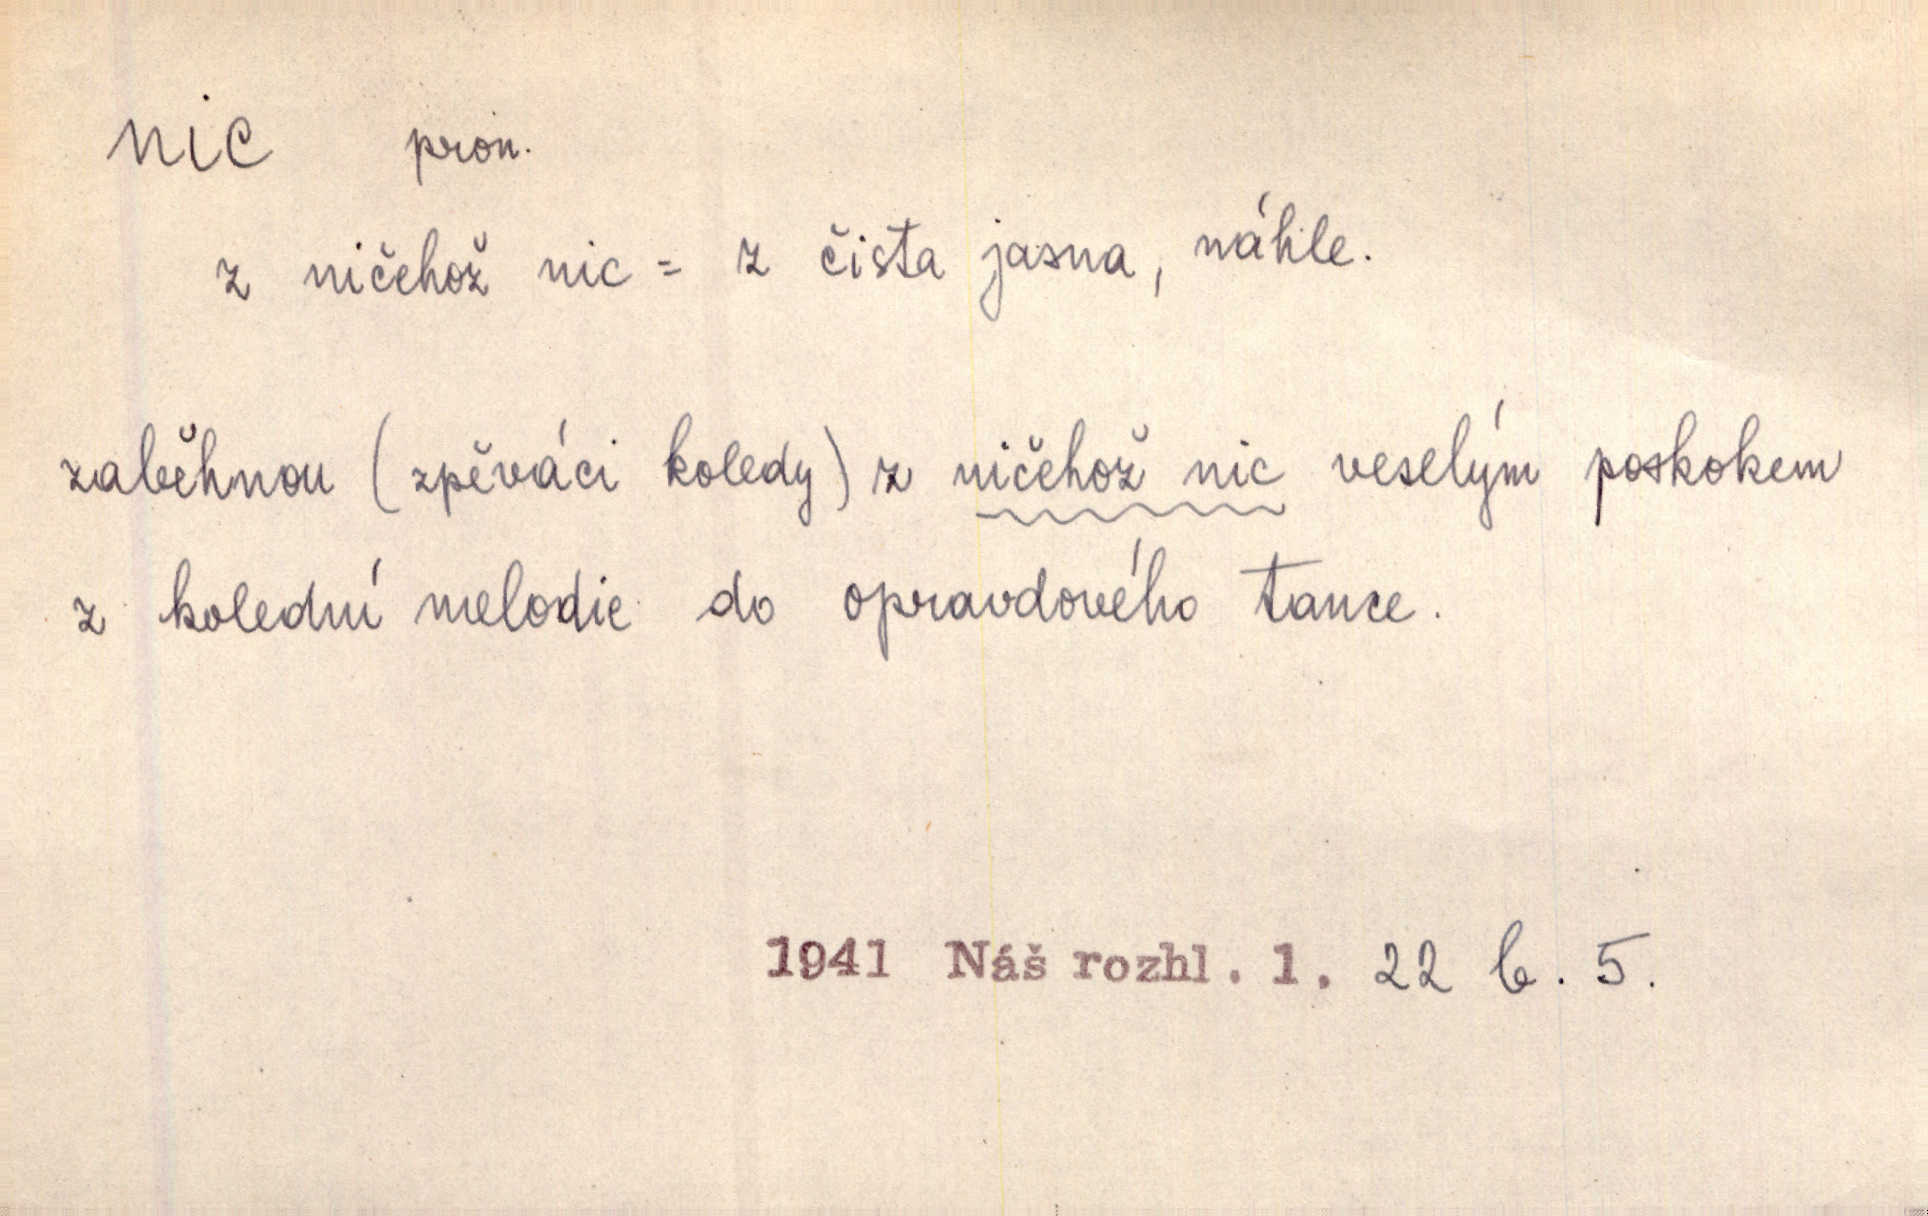 nic pron.
z ničehož nic = z čista jasna, náhle.
zaběhnou (zpěváci koledy) z ničehož nic veselým poskokem
z kolední melodie do opravdového tance.
1941 Náš rozhl. 1. 22 b. 5.